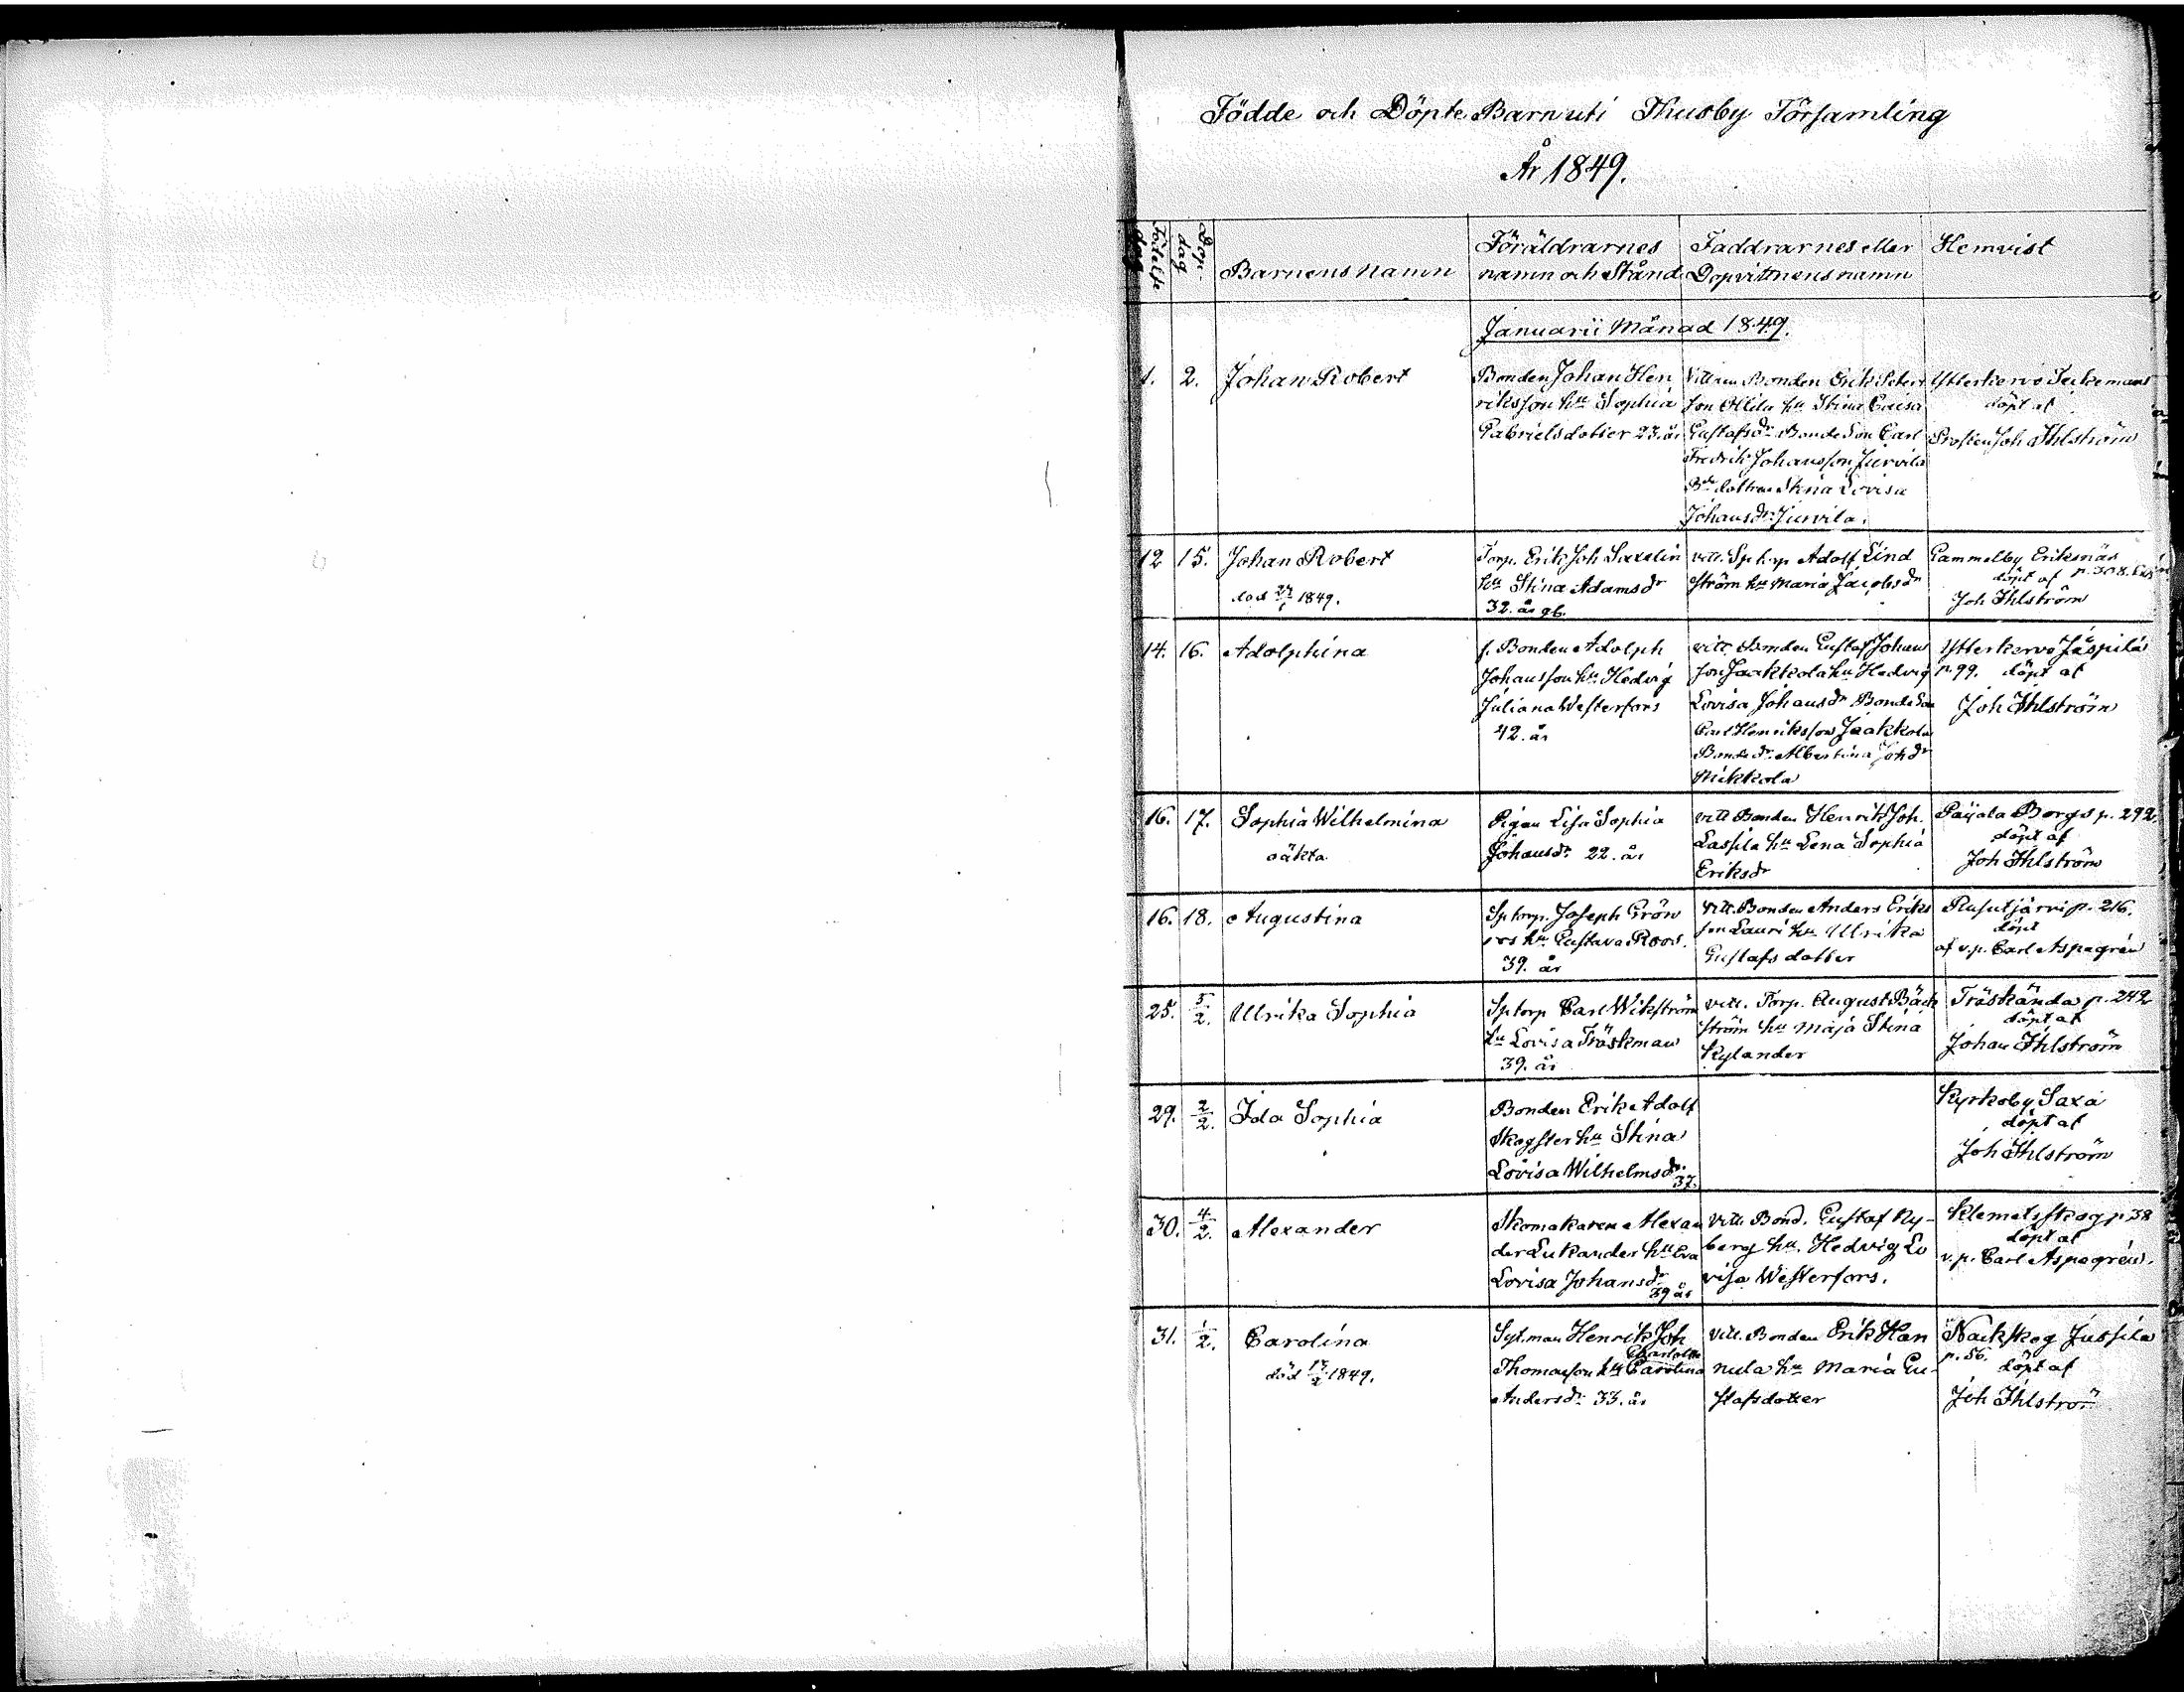 Födde och Döpte Barn uti Thusby Församling
År 1849.
Födelse dag
Dop-dag
Barnens namn
Föräldrarnes namn och Stånd
Faddrarnes eller Dopvittnens namn
Hemvist
Januarii Månad 1849.
1. 2. Johan Robert
Bonden Johan Hen
riksson hu Sophia
Gabrielsdotter 23. år
Vittnen Bonden Erik Peters
son Ollila hu Stina Caisa
Gustafsdr Bonde Son Carl
Fredrik Johansson Jurvila
Bde dottren Stina Lovisa
Johansdr Jurvila.
Ytterkervo
döpt af
Prosten Joh Ihlström
12 15. Johan Robert
död 27/1 1849.
Torp. Erik Joh Saxelin
hu Stina Adamsdr
32. år gb.
vitt. Sptorp Adolf Lind
ström hu Maria Jacobsdr
Gammelby Eriksnäs
döpt af p. 308.
Joh Ihlström
14. 16. Adolphina
f. Bonden Adolph
Johansson hu Hedvig
Juliana Westerfors
42. år
vitt. Bonden Gustaf Johans
son Jaakkola hu Hedvig
Lovisa Johansdr Bonde Son
Carl Henriksson Jaakkola
Bonde dr Albertina Joh dr
Mikkola
Ytterkervo Jäspilä
p. 99. döpt af
Joh Ihlström
16. 17. Sophia Wilhelmina
oäkta
Pigan Lisa Sophia
Johansdr 22. år
vitt Bonden Henrik Joh.
Lassila hu Lena Sophia
Eriksdr
Paijala Borgs p. 292.
döpt af
Joh Ihlström
16. 18. Augustina
Sptorp. Joseph Grön
roos hu Gustava Roos.
39. år
vitt. Bonden Anders Eriks
son Lauri hu Ulrika
Gustafs dotter
Rusutjärvi p. 216.
döpt
af v.p. Carl Aspegrén
25. 5/2. Ulrika Sophia
Sptorp Carl Wikström
hu Lovisa Träskman
39. år
vitt. Torp. August Bäck
ström hu Maja Stina
Kylander
Träskända p. 242
döpt af
Johan Ihlström
29. 2/2. Ida Sophia
Bonden Erik Adolf
Skogster hu Stina
Lovisa Wilhelmsdr.
37.
Kyrkoby Saxa
döpt af
Joh Ihlström
30. 4/2. Alexander
Skomakaren Alexan
der Lukander hu Eva
Lovisa Johansdr
39 år
vitt. Bond. Gustaf Ny-
berg hu. Hedvig Lo
visa Westerfors.
Klemetskog p 38
döpt af
v.p. Carl Aspegrén.
31. 1/2. Carolina
död 12/2 1849.
Syt.man Henrik Joh
Charlotta
Thomasson hu Carolina
Andersdr 33. år
vitt. Bonden Erik Han
nula hu Maria Gu-
stafsdotter
Nackskog Jussila
p. 56.
döpt af
Joh Ihlström